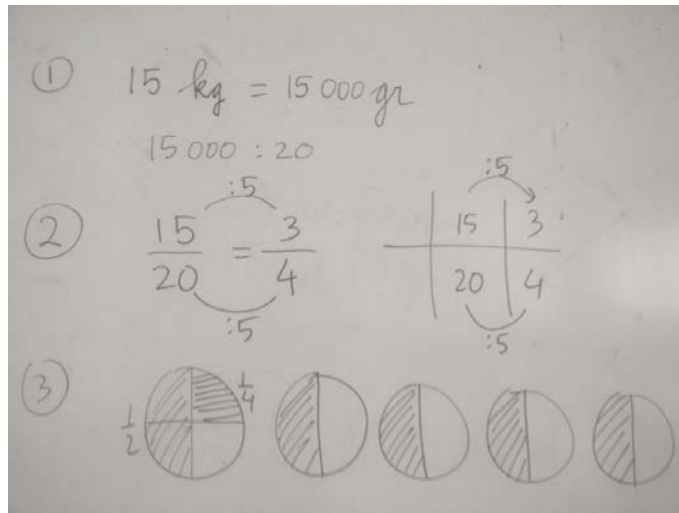 ① 15 kg = 15 000 gr
15 000 : 20
② :5 :5
15/20 = 3/4 15 3
20 4
:5 :5
③ 1/2 1/4